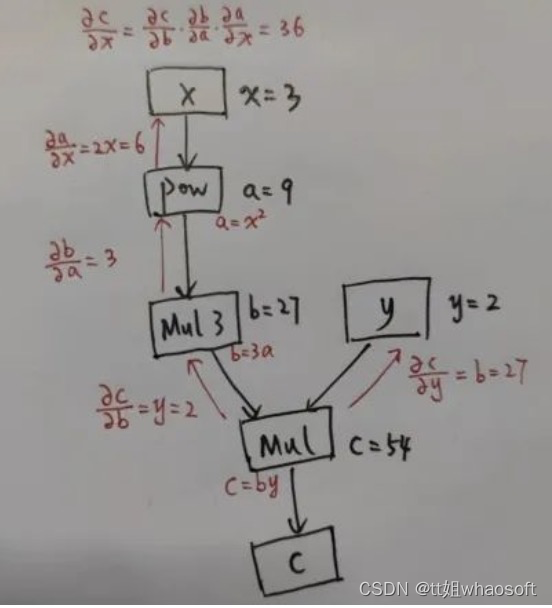 ∂c/∂x = ∂c/∂b · ∂b/∂a · ∂a/∂x = 36
x
x=3
∂a/∂x = 2x = 6
pow
a=9
a=x²
∂b/∂a = 3
Mul 3
b=27
b=3a
y
y=2
∂c/∂b = y = 2
∂c/∂y = b = 27
Mul
C=54
C=by
C
CSDN @tt姐whaosoft